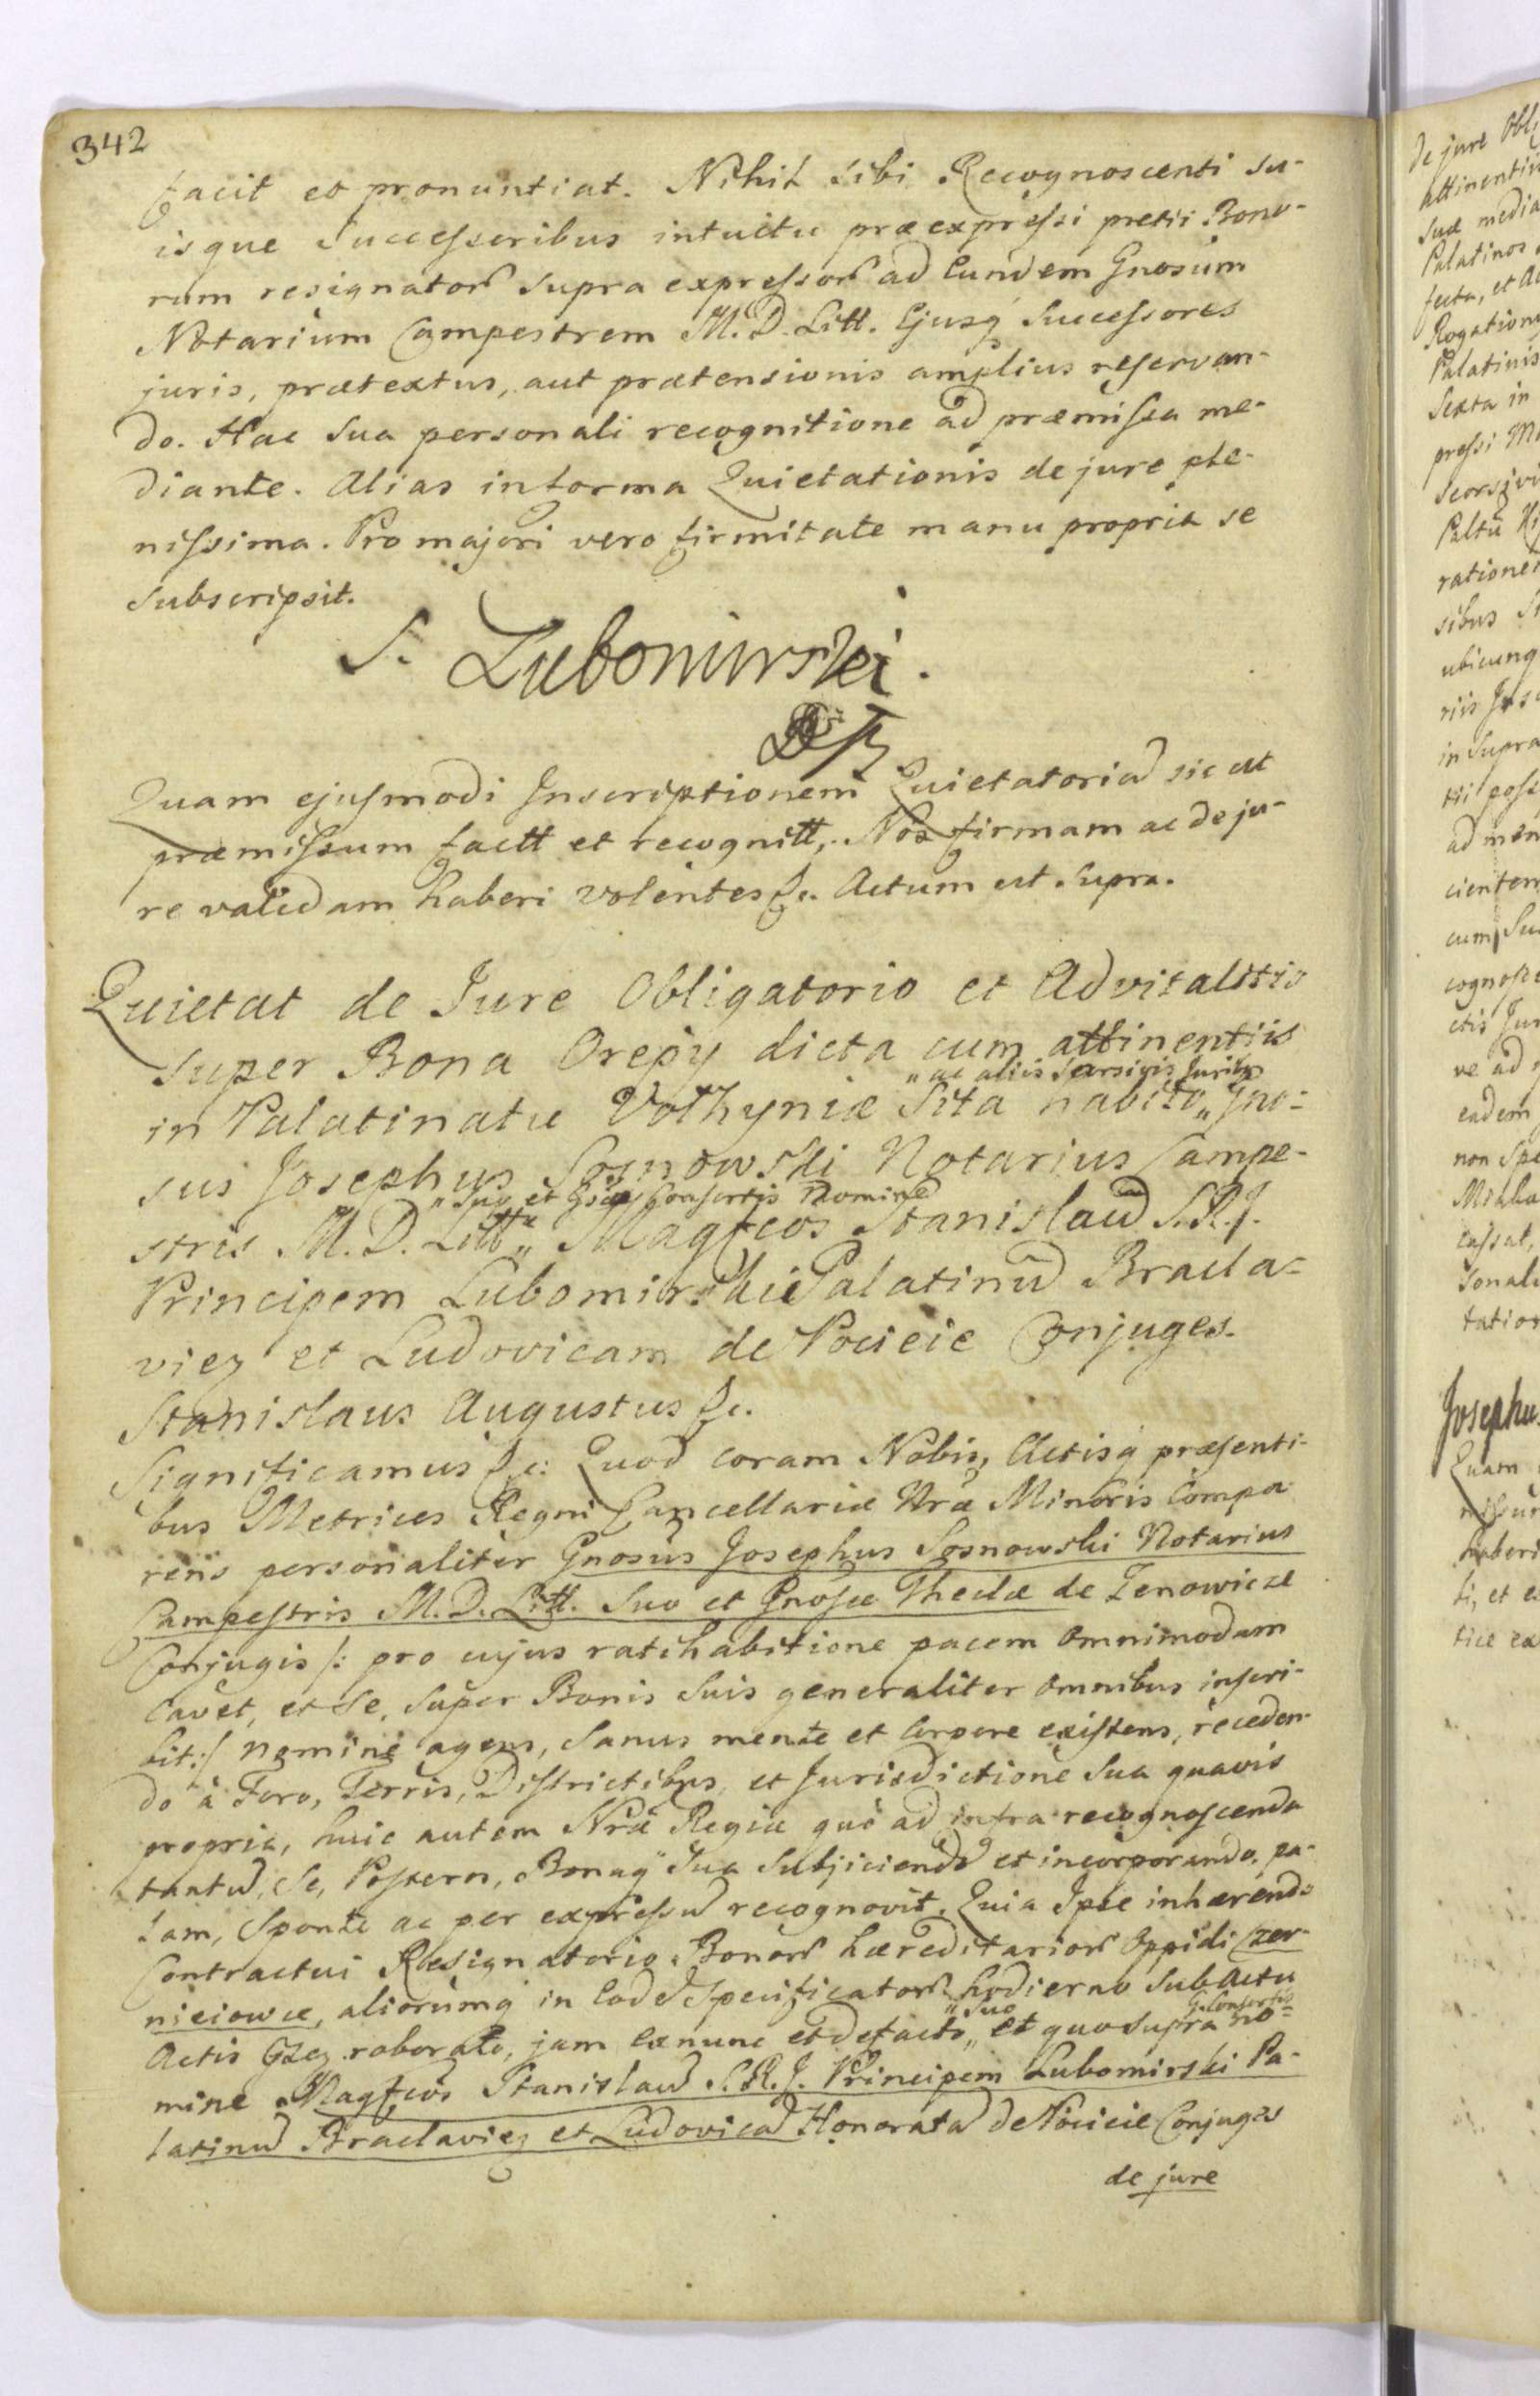 342
facit et pronuntiat. Nihil sibi Recognoscenti su-
isque Successoribus intuitu præexpressi pretii Bono-
rum resignator supra expressor ad Eundem Gnosum
Notarium Campestrem M. D. Litt. Ejusq Successores
juris, prætextus, aut prætensionis amplius reservan-
do. Hac Sua personali recognitione ad præmissa me-
diante. Alias in forma Quietationis de jure ple-
nissima. Pro majori vero firmitate manu propria se
subscripsit.
S. Lubomirski.
Quam ejusmodi Inscriptionem Quietatoriam sic ut
præmissum factt et recognitt, Nos firmam ac de ju-
re validam haberi volentes &c. Actum ut supra.
Quietat de Jure Obligatorio et Advitalitio
super Bona Orepy dicta cum attinentiis
„ac aliis Seorsivis Juribs
in Palatinatu Volhyniæ Sita habito„ Gno-
sus Josephus Sosnowski Notarius Campe-
„Suo et Gsæ Consortis Nomine
stris M. D. Litt„ Magfcos Stanislaum S. R. J.
Principem Lubomirski Palatinum Bracla-
vien et Ludovicam de Pocieie Conjuges.
Stanislaus Augustus &c.
Significamus &c: Quod coram Nobis, Actisq præsenti-
bus Metrices Regni Cancellariæ Nræ Minoris Compa
rens personaliter Gnosus Josephus Sosnowski Notarius
Campestris M. D. Litt. Suo et Gnosæ Theclæ de Zenowicze
Conjugis /: pro cujus ratihabitione pacem Omnimodam
Cavet, et Se, Super Bonis Suis generaliter Omnibus inscri-
bit:/ nomine agens, Sanus mente et Corpore existens, receden-
do à Foro, Terris, Districtibus, et Jurisdictione Sua quavis
propria, huic autem Nræ Regiæ quò ad infra recognoscenda
tantum, Se, Posteros, Bonaq Sua Subjiciendo et incorporando, pa-
lam, Sponte ac per expressum recognovit. Quia Ipse inhærendo
Contractui Resignatorio Bonor hæreditarior Oppidi Czer-
nieiowce, aliorumq in Eodem Specificator hodierno Sub Actu
„Suo G. Consortis
Actis Gzez roborato, jam exnunc et defacto„ et quo supra no-
mine Magfcos Stanislaum S. R. J. Principem Lubomirski Pa-
latinum Braclavien et Ludovicam Honoratam de Pocieie Conjuges
de jure
de jure Obli
attinentiis
Suæ media
Palatinos
fecta, et
Rogation
Palatinis
Sexta in
pressi
Paltu
rationem
sibus
ubicunq
in Supra
ad men
cientem
cum
ve ad
eadem
non Spe
cassat,
sonali
tation
Josephu
Quam
haberi
ti, et